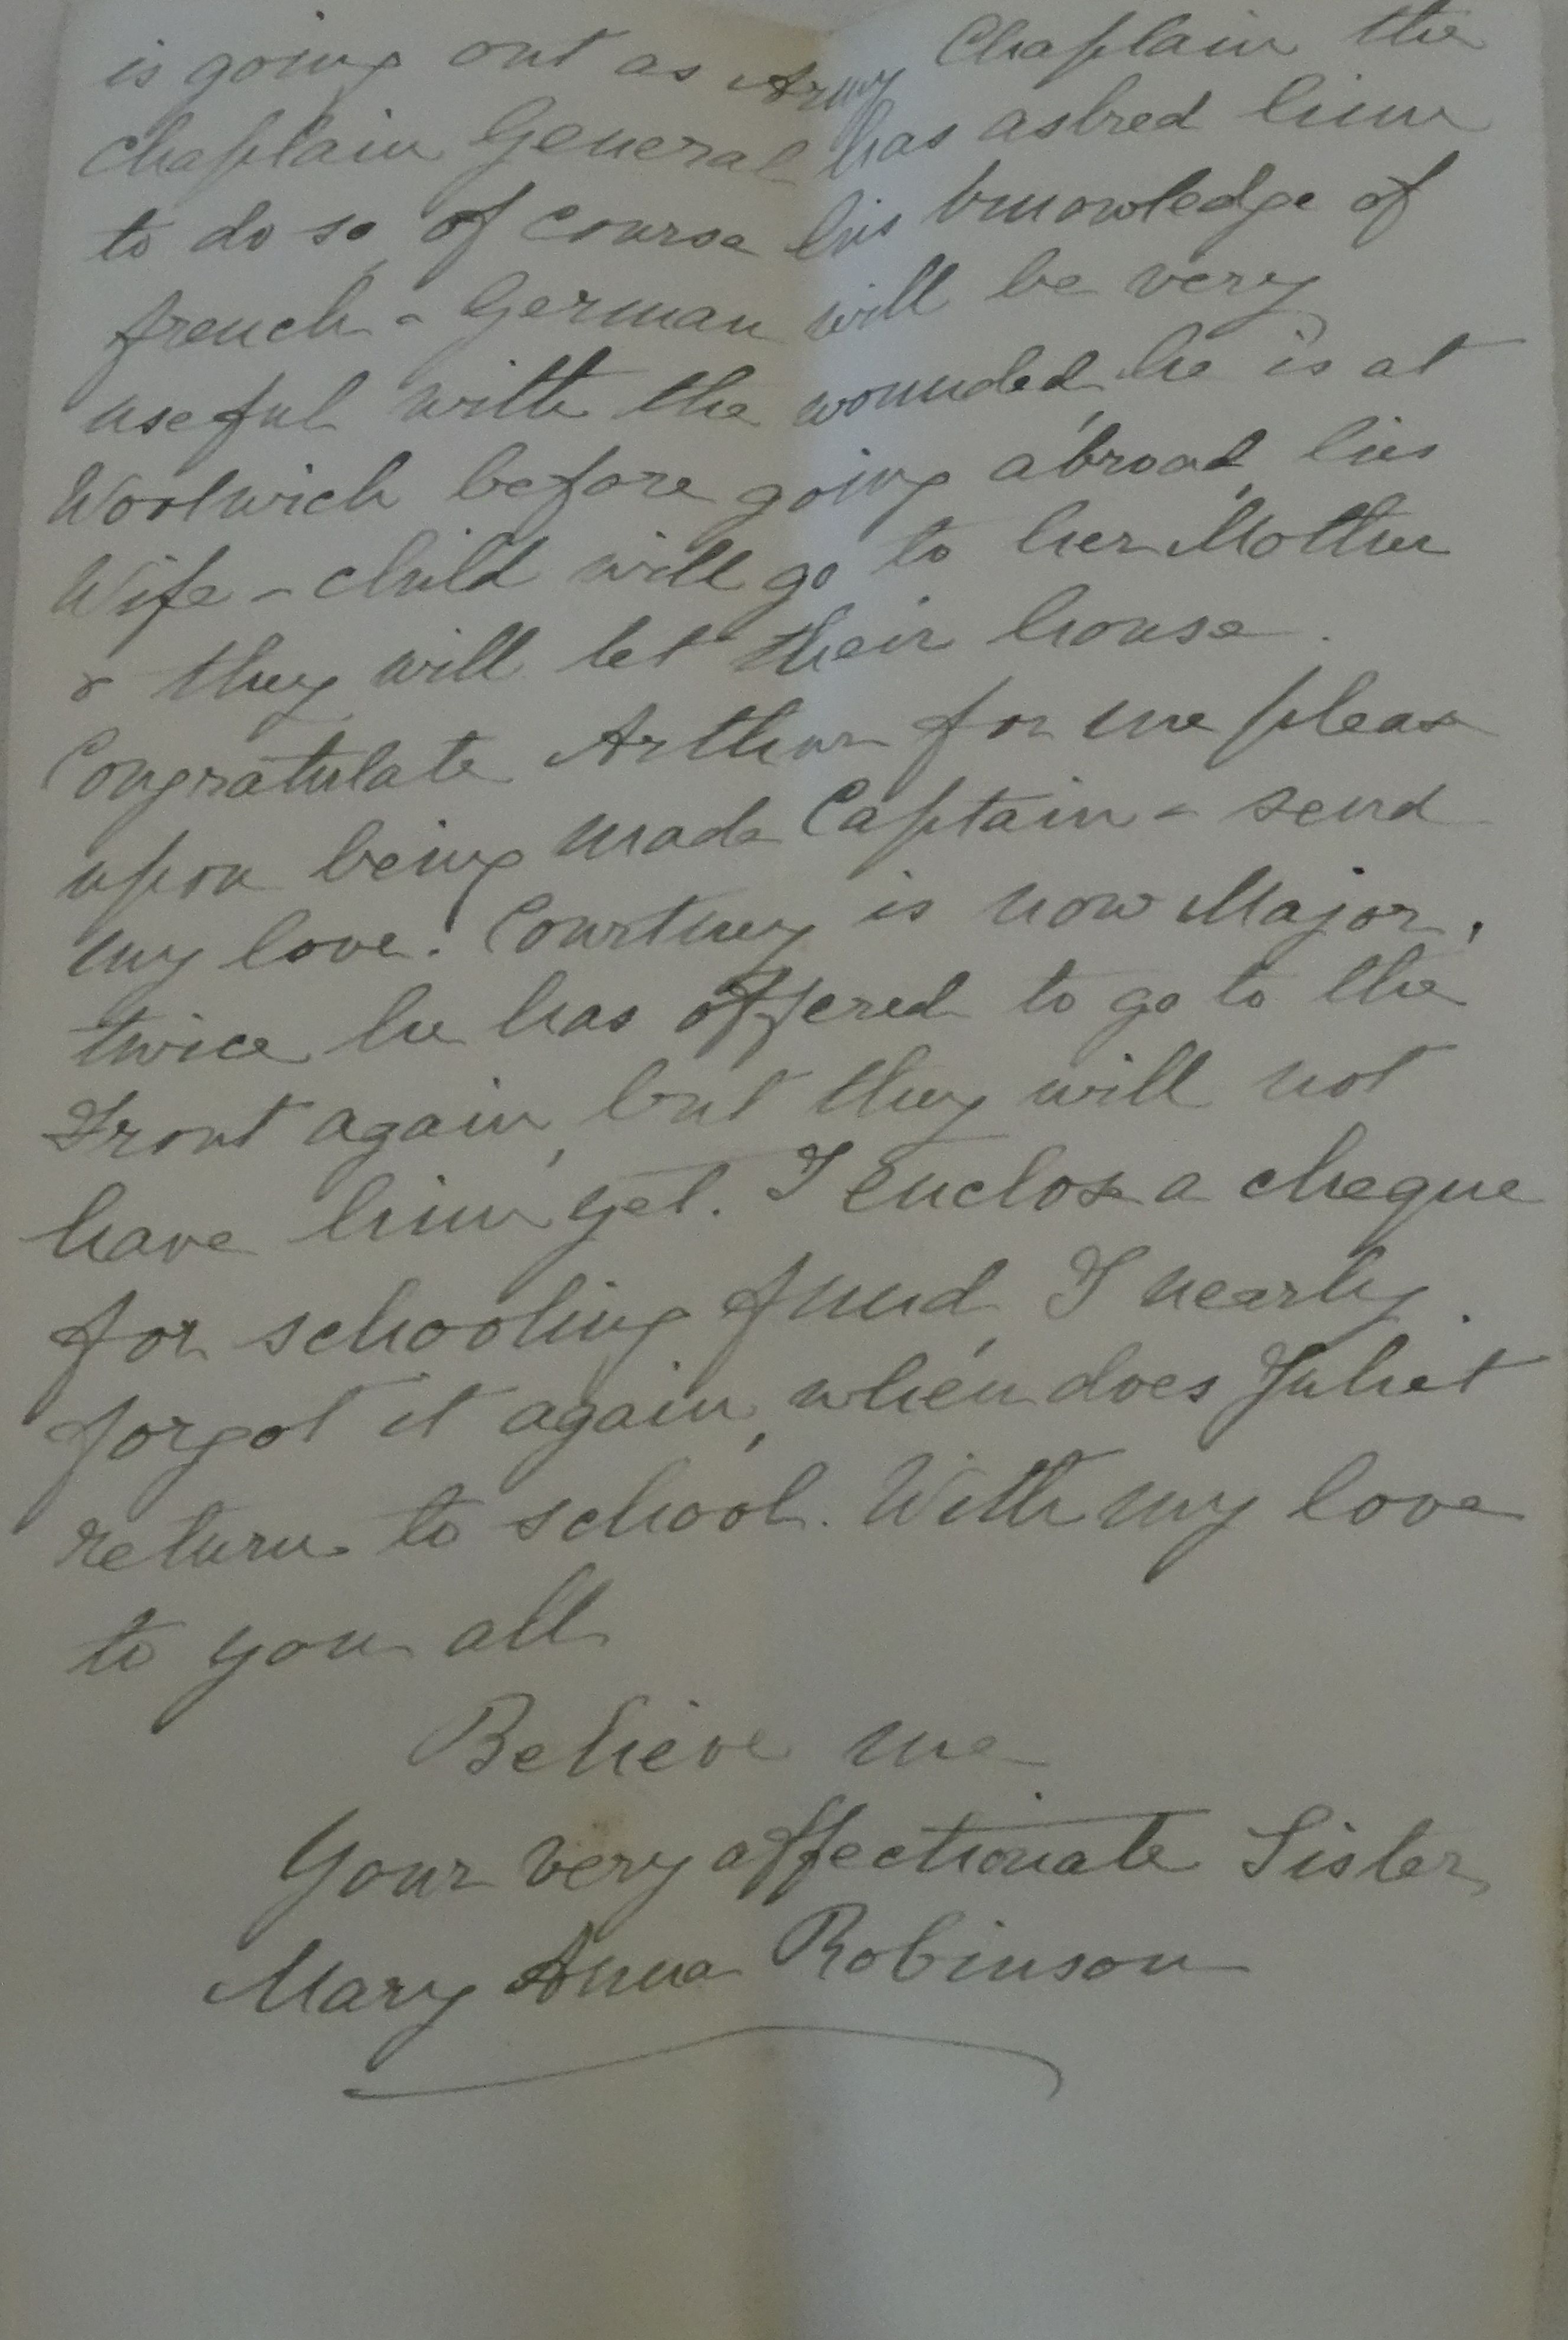 is going out as Army Chaplain the
Chaplain General has asked him
to do so, of course his knowledge of
french & German will be very
useful with the wounded, he is at
Woolwich before going abroad, his
Wife & child will go to her Mother
& they will let their house.
Congratulate Arthur for me please
upon being made Captain & send
my love! Courtney is now Major,
twice he has offered to go to the
Front again, but they will not
have him yet. I enclose a cheque
for schooling fund, I nearly
forgot it again, when does Juliet
return to school. With my love
to you all
Believe me
Your very affectionate Sister
Mary Anna Robinson